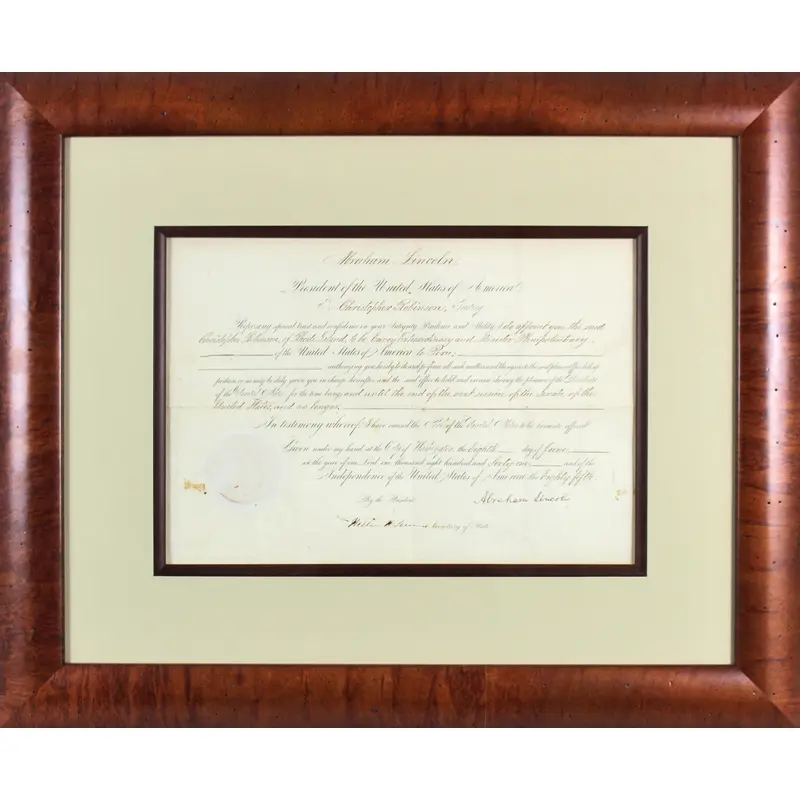 Abraham Lincoln
President of the United States of America
Christopher Robinson,
Reposing special trust and confidence in your Integrity Prudence and Ability, I do appoint you, the said
Christopher Robinson, of Rhode Island, to be Envoy Extraordinary and Minister Plenipotentiary
of the United States of America to Peru,
authorizing you hereby to do and perform all such matters and things as to the said place or office
and the said office to hold and exercise during the pleasure of the President
of the United States for the time being, and until the end of the next session of the Senate of the
United States, and no longer.
In testimony whereof, I have caused the Seal of the United States to be hereunto affixed.
Given under my hand at the City of Washington the Eighth day of June
in the year of our Lord one thousand eight hundred and Sixty one; and of the
Independence of the United States of America the Eighty fifth.
By the President
Abraham Lincoln
Secretary of State